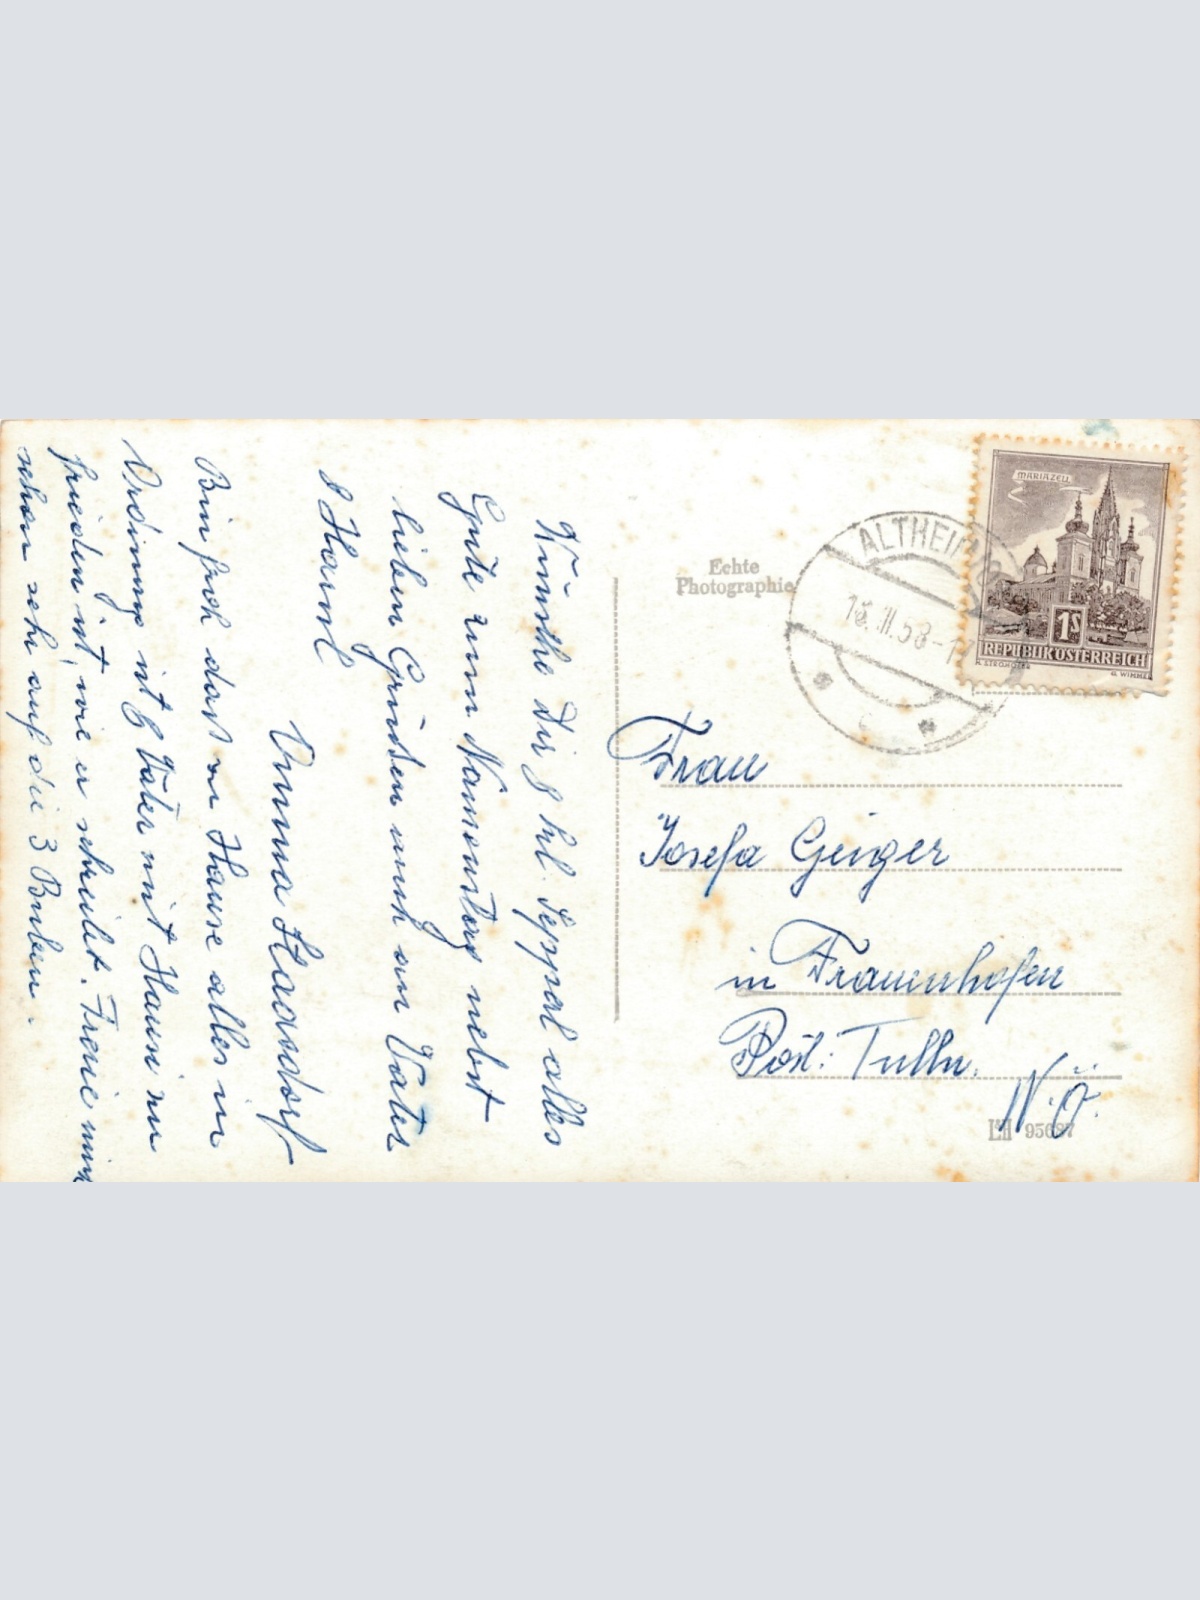 Wünsche Dir, hl. Seppal alles
Gute zum Namenstag nebst
lieben Grüßen auch an Vater
Hansl
Anna Haasdorf
Bin froh das zu Hause alles in
Ordnung ist Vater mit Hansi zu
frieden ist, wie er schreibt. Freue mich
schon sehr auf die 3 Buben.
Echte
Photographie
ALTHEIM
.III.58-17
MARIAZELL
1S
REPUBLIK ÖSTERREICH
A. STROHOFER
G. WIMMER
Frau
Josefa Geiger
in Frauenhofen
Post: Tulln.
N.Ö.
LH 95687